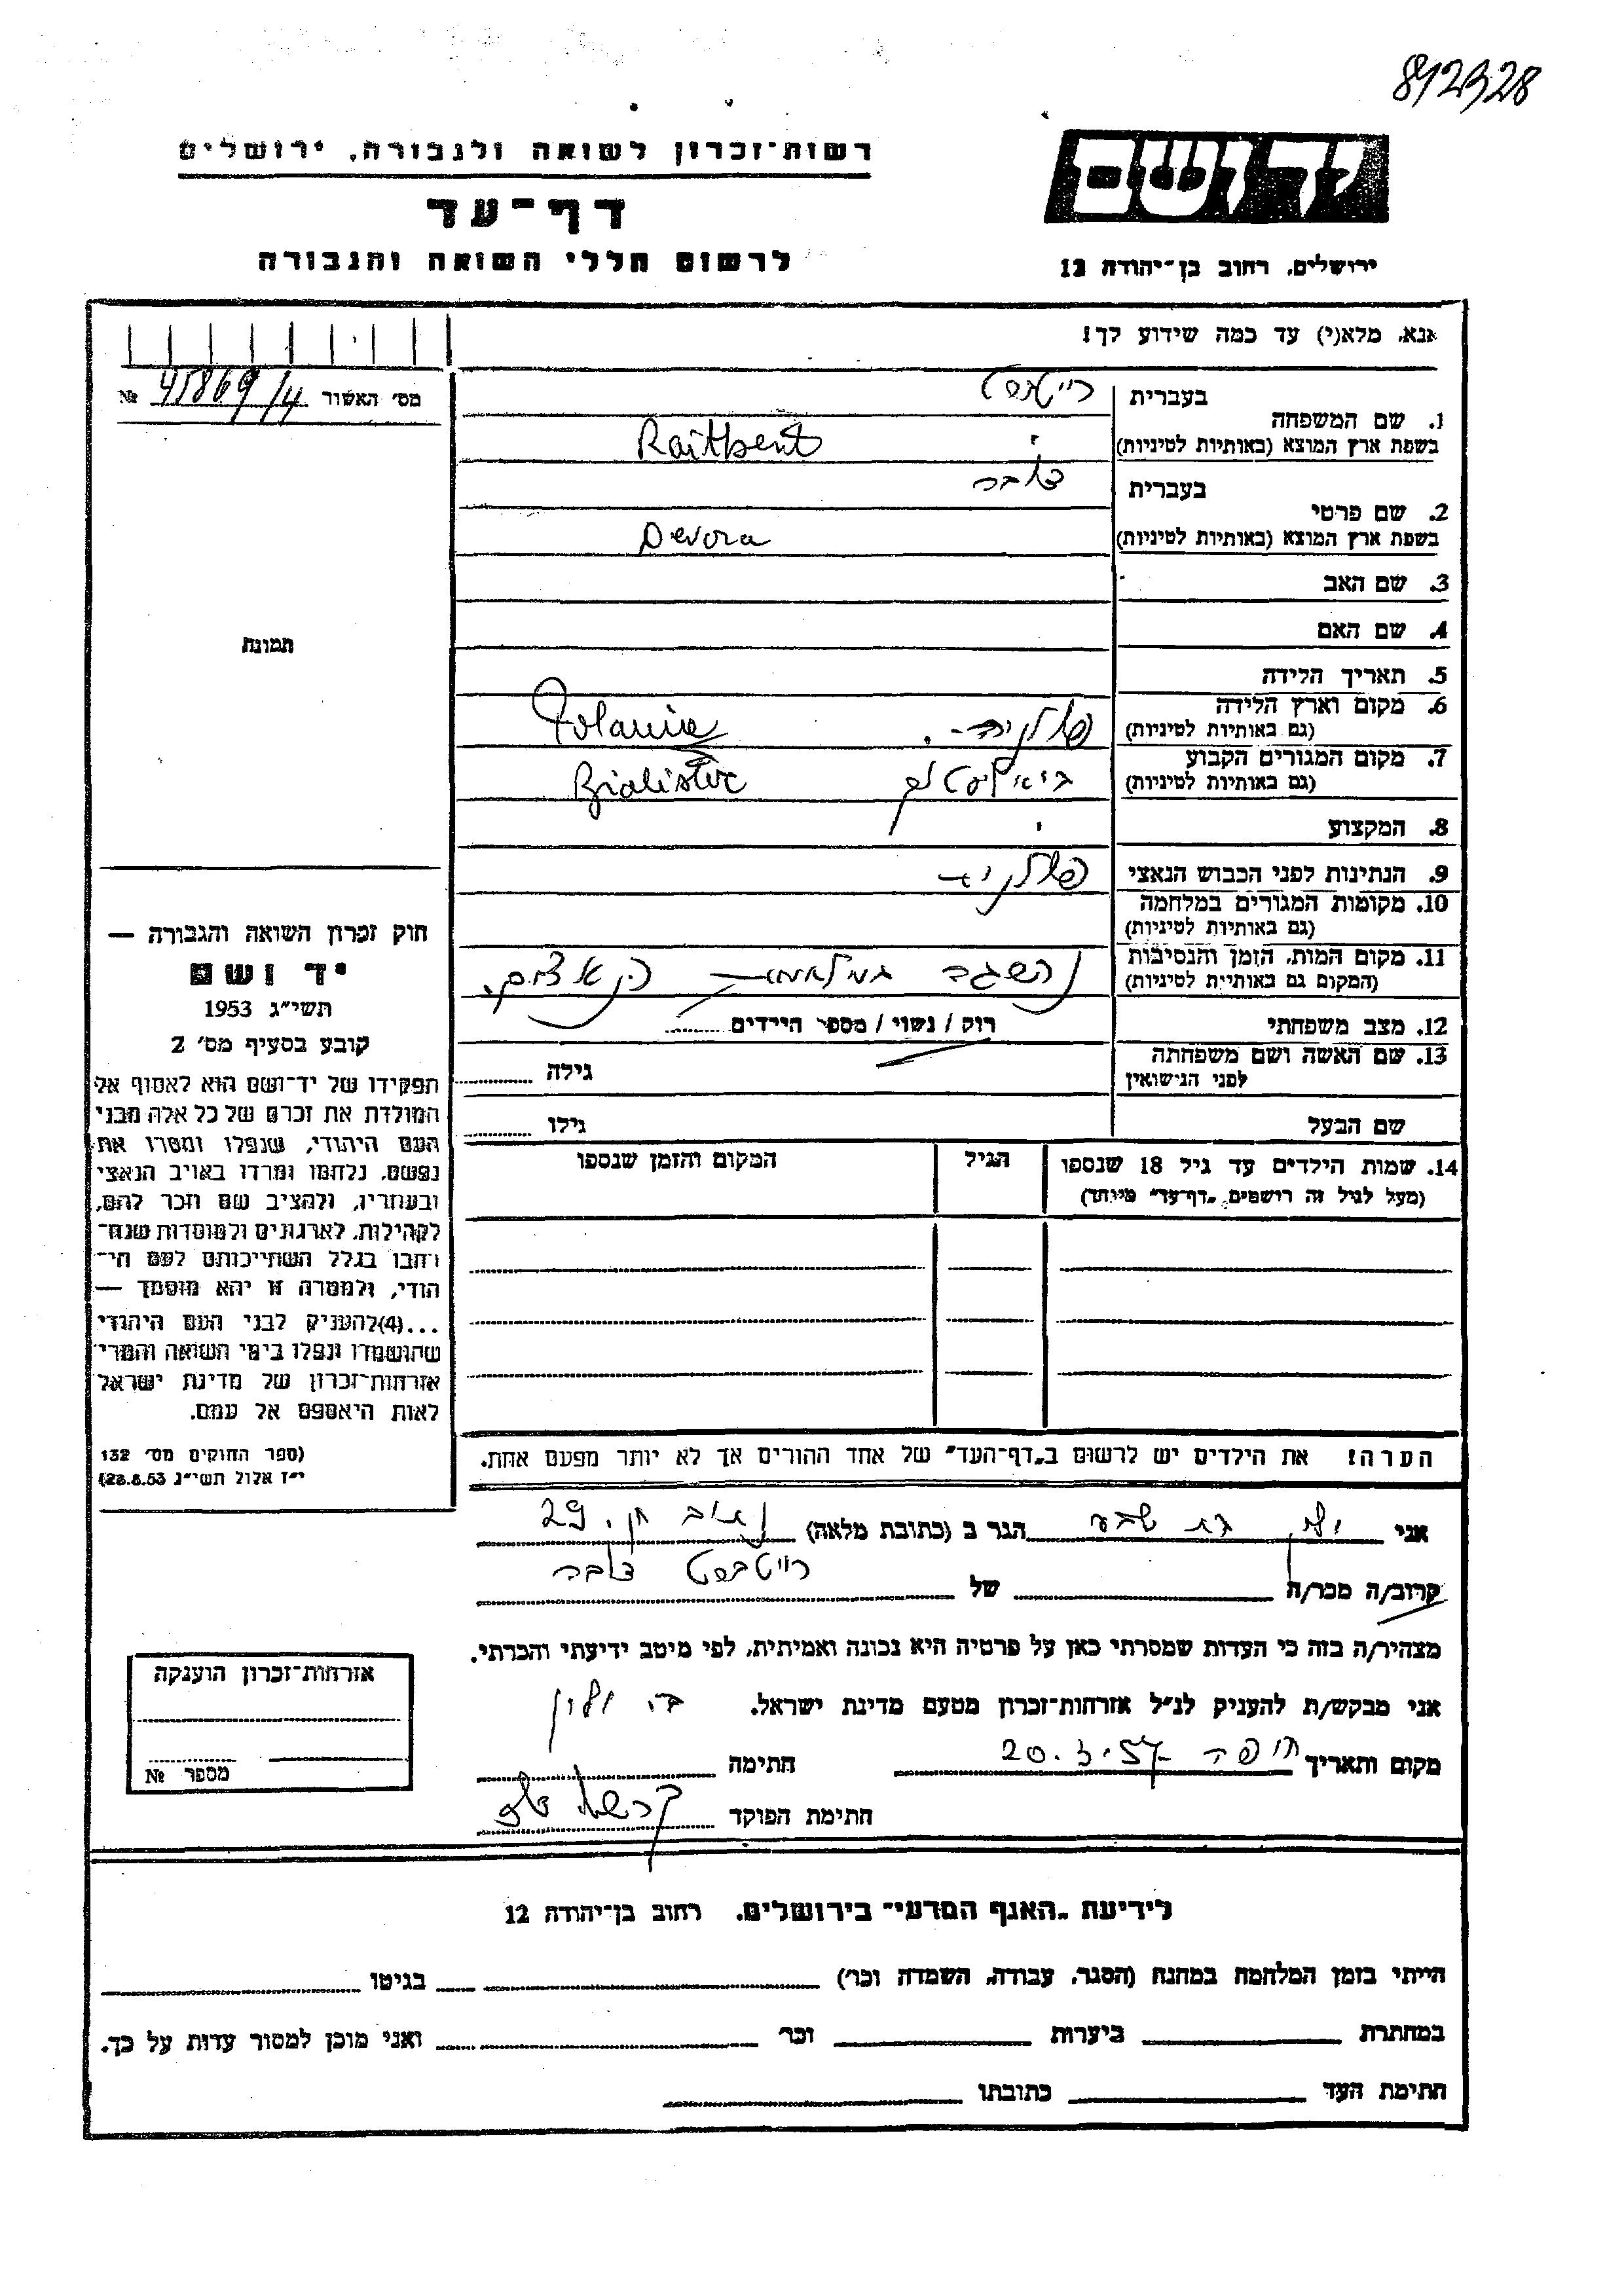 812328
רשות־זכרון לשואה ולגבורה, ירושלים
דף־עד
לרשום חללי השואה והגבורה
יד ושם
ירושלים, רחוב בן־יהודה 12
אנא, מלא(י) עד כמה שידוע לך!
מס׳ האשור 45869/4 №
1. שם המשפחה
בעברית
בשפת ארץ המוצא (באותיות לטיניות) Raitbent
2. שם פרטי
בעברית דבורה
בשפת ארץ המוצא (באותיות לטיניות) Devora
3. שם האב
4. שם האם
תמונה
5. תאריך הלידה
6. מקום וארץ הלידה פולניה. Polania
(גם באותיות לטיניות)
7. מקום המגורים הקבוע ביאליסטוק Bialistoc
(גם באותיות לטיניות)
8. המקצוע
9. הנתינות לפני הכבוש הנאצי פולניה
10. מקומות המגורים במלחמה
(גם באותיות לטיניות)
11. מקום המות, הזמן והנסיבות
(המקום גם באותיות לטיניות)
12. מצב משפחתי רווק / נשוי / מספר הילדים
13. שם האשה ושם משפחתה גילה
לפני הנישואין
שם הבעל גילו
14. שמות הילדים עד גיל 18 שנספו הגיל המקום והזמן שנספו
(מעל לגיל זה רושמים „דף־עד״ מיוחד)
חוק זכרון השואה והגבורה —
יד ושם
תשי״ג 1953
קובע בסעיף מס׳ 2
תפקידו של יד־ושם הוא לאסוף אל
המולדת את זכרם של כל אלה מבני
העם היהודי, שנפלו ומסרו את
נפשם, נלחמו ומרדו באויב הנאצי
ובעוזריו, ולהציב שם וזכר להם,
לקהילות, לארגונים ולמוסדות שנח־
רבו בגלל השתייכותם לעם הי־
הודי, ולמטרה זו יהא מוסמך —
...(4)להעניק לבני העם היהודי
שהושמדו ונפלו בימי השואה והמרי
אזרחות־זכרון של מדינת ישראל
לאות היאספם אל עמם.
(ספר החוקים מס׳ 132
י״ז אלול תשי״ג 28.8.53)
הערה! את הילדים יש לרשום ב„דף־העד״ של אחד ההורים אך לא יותר מפעם אחת.
אני בת שבע הגר ב (כתובת מלאה) 29
קרוב/ה מכר/ה של דבורה
מצהיר/ה בזה כי העדות שמסרתי כאן על פרטיה היא נכונה ואמיתית, לפי מיטב ידיעתי והכרתי.
אני מבקש/ת להעניק לנ״ל אזרחות־זכרון מטעם מדינת ישראל.
מקום ותאריך חיפה 20.3.57 חתימה
חתימת הפוקד
אזרחות־זכרון הוענקה
מספר №
לידיעת „האגף המדעי״ בירושלים, רחוב בן־יהודה 12
הייתי בזמן המלחמה במחנה (הסגר, עבודה, השמדה וכר׳) בגיטו
במחתרת ביערות וכר׳ ואני מוכן למסור עדות על כך.
חתימת העד כתובתו